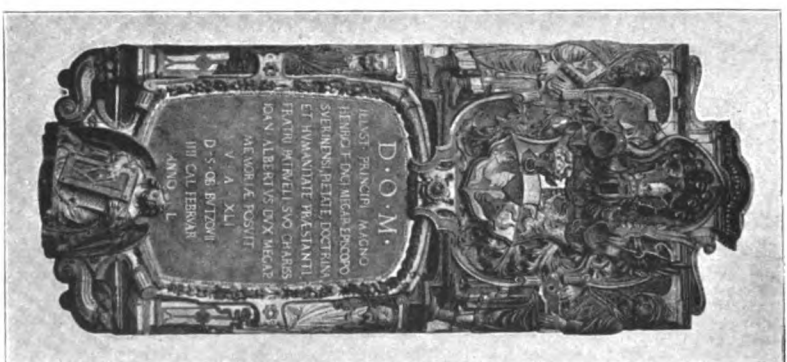 D · O · M ·
ILLUST · PRINCIPI MAGNO
HENRICI F · DVCI MEGAP · EPISCOPO
SVERINENSI, PIETATE, DOCTRINA
ET HVMANITATE PRÆSTANTI
FRATRI PATRVELI SVO CHARISS
IOAN · ALBERTVS DVX MEGAP
MEMORIÆ POSVIT
V · A · XLI
D · S · OB · BVTZOVII
IIII CAL FEBRVAR
ANNO L